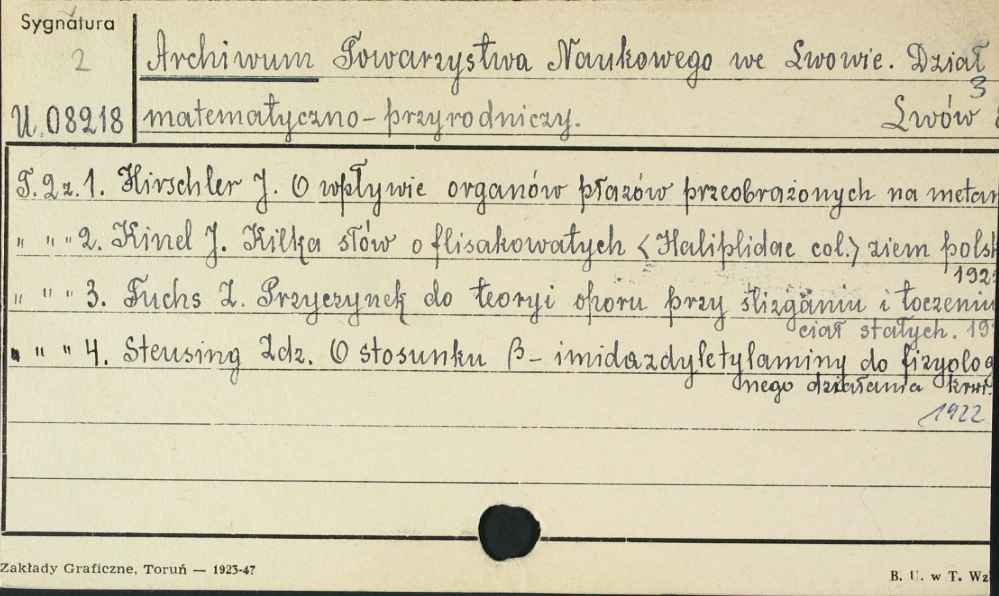 Sygnatura
2
U. 08218
Archiwum Towarzystwa Naukowego we Lwowie. Dział
3
matematyczno-przyrodniczy. Lwów
T. 2 z. 1. Hirschler J. O wpływie organów płazów przeobrażonych na metam
" " " 2. Kinel J. Kilka słów o flisakowatych <Haliplidae col.> ziem polsk
192
" " " 3. Fuchs Z. Przyczynek do teoryi oporu przy ślizganiu i toczeniu
ciał stałych. 19
" " " 4. Steusing Zdz. O stosunku β-imidazdyletylaminy do fizyolog
nego działania krwi.
1922
Zakłady Graficzne, Toruń — 1923-47
B. U. w T. Wz